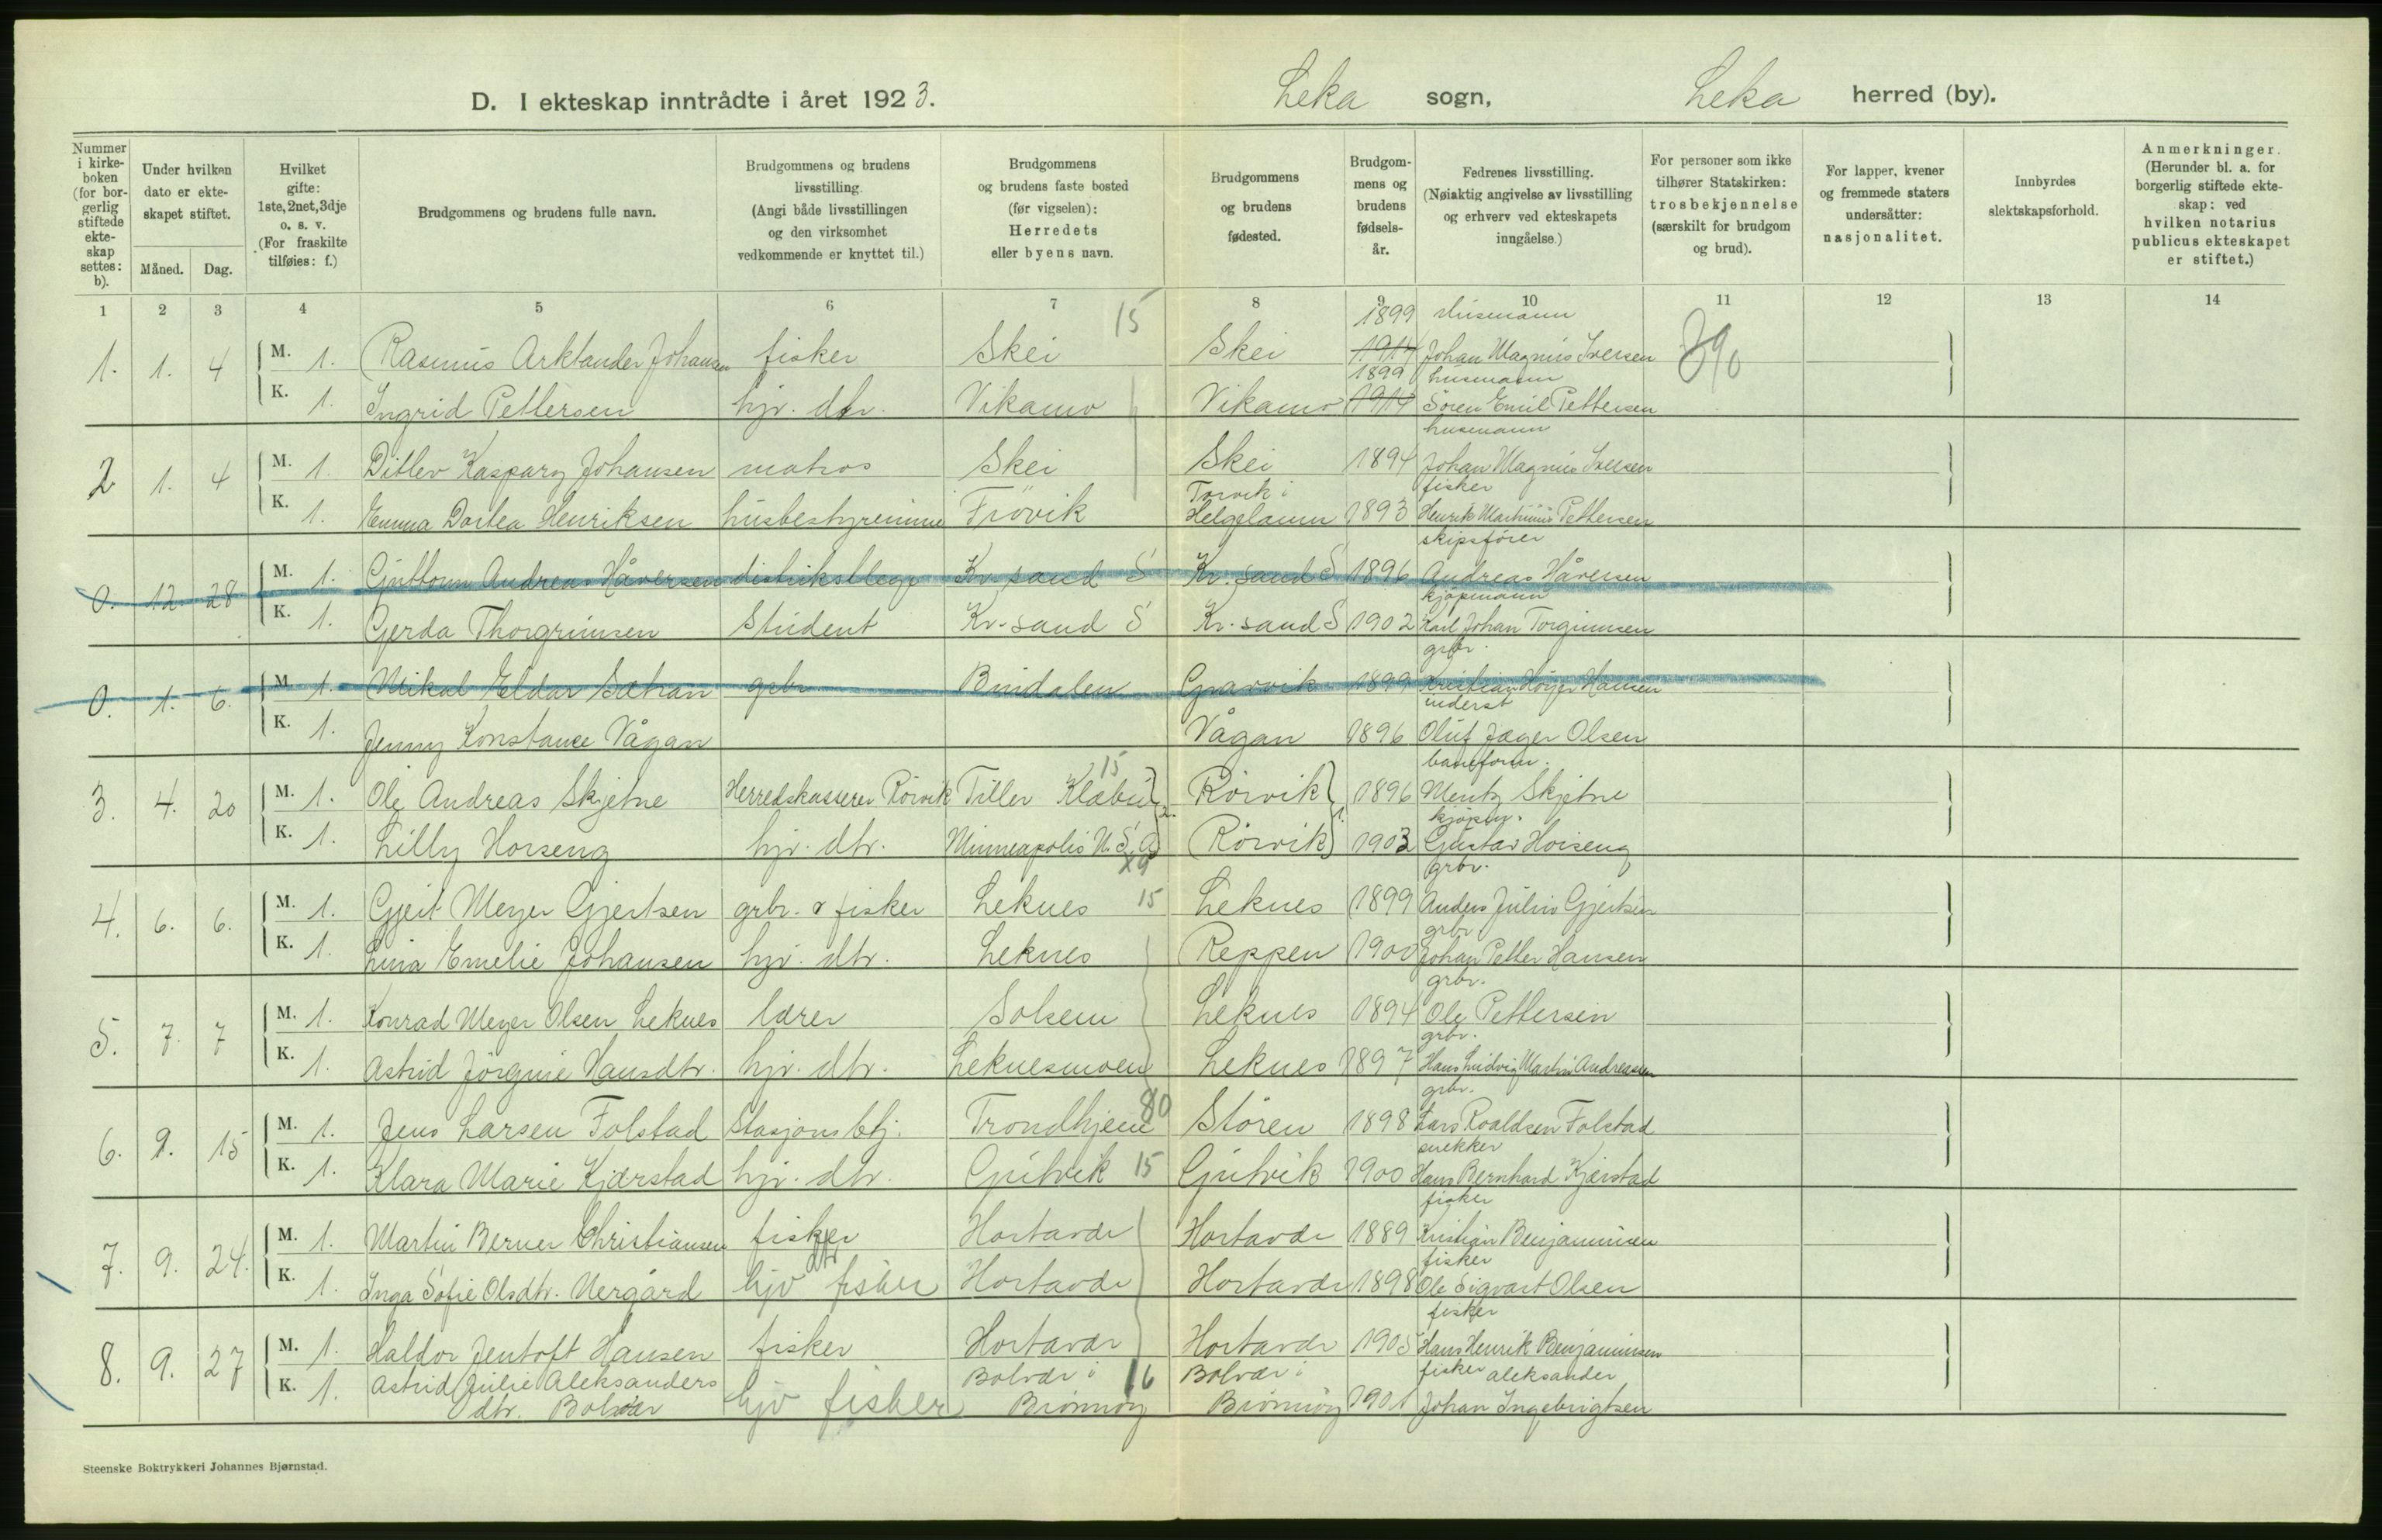 D. I ekteskap inntrådte i året 1923. Leka sogn, Leka herred (by).
Nummer i kirkeboken (for borgerlig stiftede ekteskap settes: b).
Under hvilken dato er ekteskapet stiftet.
Måned. Dag.
Hvilket gifte: 1ste, 2net, 3dje o. s. v. (For fraskilte tilføies: f.)
Brudgommens og brudens fulle navn.
Brudgommens og brudens livsstilling. (Angi både livsstillingen og den virksomhet vedkommende er knyttet til.)
Brudgommens og brudens faste bosted (før vigselen): Herredets eller byens navn.
Brudgommens og brudens fødested.
Brudgommens og brudens fødselsår.
Fedrenes livsstilling. (Nøiaktig angivelse av livsstilling og erhverv ved ekteskapets inngåelse.)
For personer som ikke tilhører Statskirken: trosbekjennelse (særskilt for brudgom og brud).
For lapper, kvener og fremmede staters undersåtter: nasjonalitet.
Innbyrdes slektskapsforhold.
Anmerkninger. (Herunder bl. a. for borgerlig stiftede ekteskap: ved hvilken notarius publicus ekteskapet er stiftet.)
1 2 3 4 5 6 7 8 9 10 11 12 13 14
15 1899 Husmann
1. 1. 4 M. 1. Rasmus Arktander Johansen fisker Skei Skei 1914 Johan Magnus Iversen
1899 husmann
K. 1. Ingrid Pettersen hjv. dtr. Vikamo Vikamo 1914 Sören Emil Pettersen
husmann
2 1. 4 M. 1. Ditlev Kaspary Johansen matros Skei Skei 1894 Johan Magnus Iversen
Torvik i fisker
K. 1. Emma Dortea Henriksen husbestyrerinne Frövik Helgelann 1893 Henrik Martinus Pettersen
skipsförer
0. 12. 28 M. 1. Guttorm Andreas Håversen distriktslege Kr.sand S Kr.sand S 1896 Andreas Håversen
kjöpmann
K. 1. Gerda Thorgrimsen Student Kr.sand S Kr.sand S 1902 Karl Johan Torgrimsen
grbr.
0. 1. 6. M. 1. Mikal Eldar Sætran grbr Bindalen Gravvik 1899 Kristian Höyer Hansen
inderst
K. 1. Jenny Konstance Vågan Vågan 1896 Oluf Jæger Olsen
15 baneform.
3. 4. 20 M. 1. Ole Andreas Skjetne Herredskasserer Rörvik Tiller Klæbu Rörvik 1896 Mentz Skjetne
kjöpm.
K. 1. Lilly Horseng hjv. dtr. Minneapolis U.S.A Rörvik 1903 Gustav Horseng
x9 grbr.
4. 6. 6. M. 1. Gjert Meyer Gjertsen grbr. & fisker Leknes 15 Leknes 1899 Anders Julius Gjertsen
grbr
K. 1. Lina Emelie Johansen hjv. dtr. Leknes Reppen 1900 Johan Petter Hansen
grbr.
5. 7. 7 M. 1. Konrad Meyer Olsen Leknes lærer Solsem Leknes 1894 Ole Pettersen
grbr.
K. 1. Astrid Jörgine Hansdtr. hjv. dtr. Leknesmoen Leknes 1897 Hans Ludvig Martin Andreassen
grbr.
6. 9. 15 M. 1. Jens Larsen Folstad Stasjonsbtj. Trondhjem 80 Stören 1898 Lars Roaldsen Folstad
snekker
K. 1. Klara Marie Kjærstad hjv. dtr. Gutvik 15 Gutvik 1900 Hans Bernhard Kjærstad
fisker
7. 9. 24. M. 1. Martin Berner Christiansen fisker Hortavær Hortavær 1889 Kristian Benjaminsen
dtr fisker
K. 1. Inga Sofie Olsdtr. Uergård hjv fisker Hortavær Hortavær 1898 Ole Sigvart Olsen
fisker
8. 9. 27 M. 1. Haldor Jentoft Hansen fisker Hortavær Hortavær 1905 Hans Henrik Benjaminsen
K. 1. Astrid Julie Aleksanders Bolvær i 16 Bolvær i fisker Aleksander
dtr. Bolvær hjv fisker Brönnöy Brönnöy 1901 Johan Ingebrigtsen
Steenske Boktrykkeri Johannes Bjørnstad.